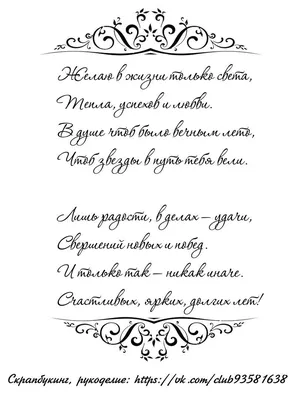 Желаю в жизни только света,
Тепла, успехов и любви.
В душе чтоб было вечным лето,
Чтоб звезды в путь тебя вели.
Лишь радости, в делах – удачи,
Свершений новых и побед.
И только так – никак иначе.
Счастливых, ярких, долгих лет!
Скрапбукинг, рукоделие: https://vk.com/club93581638